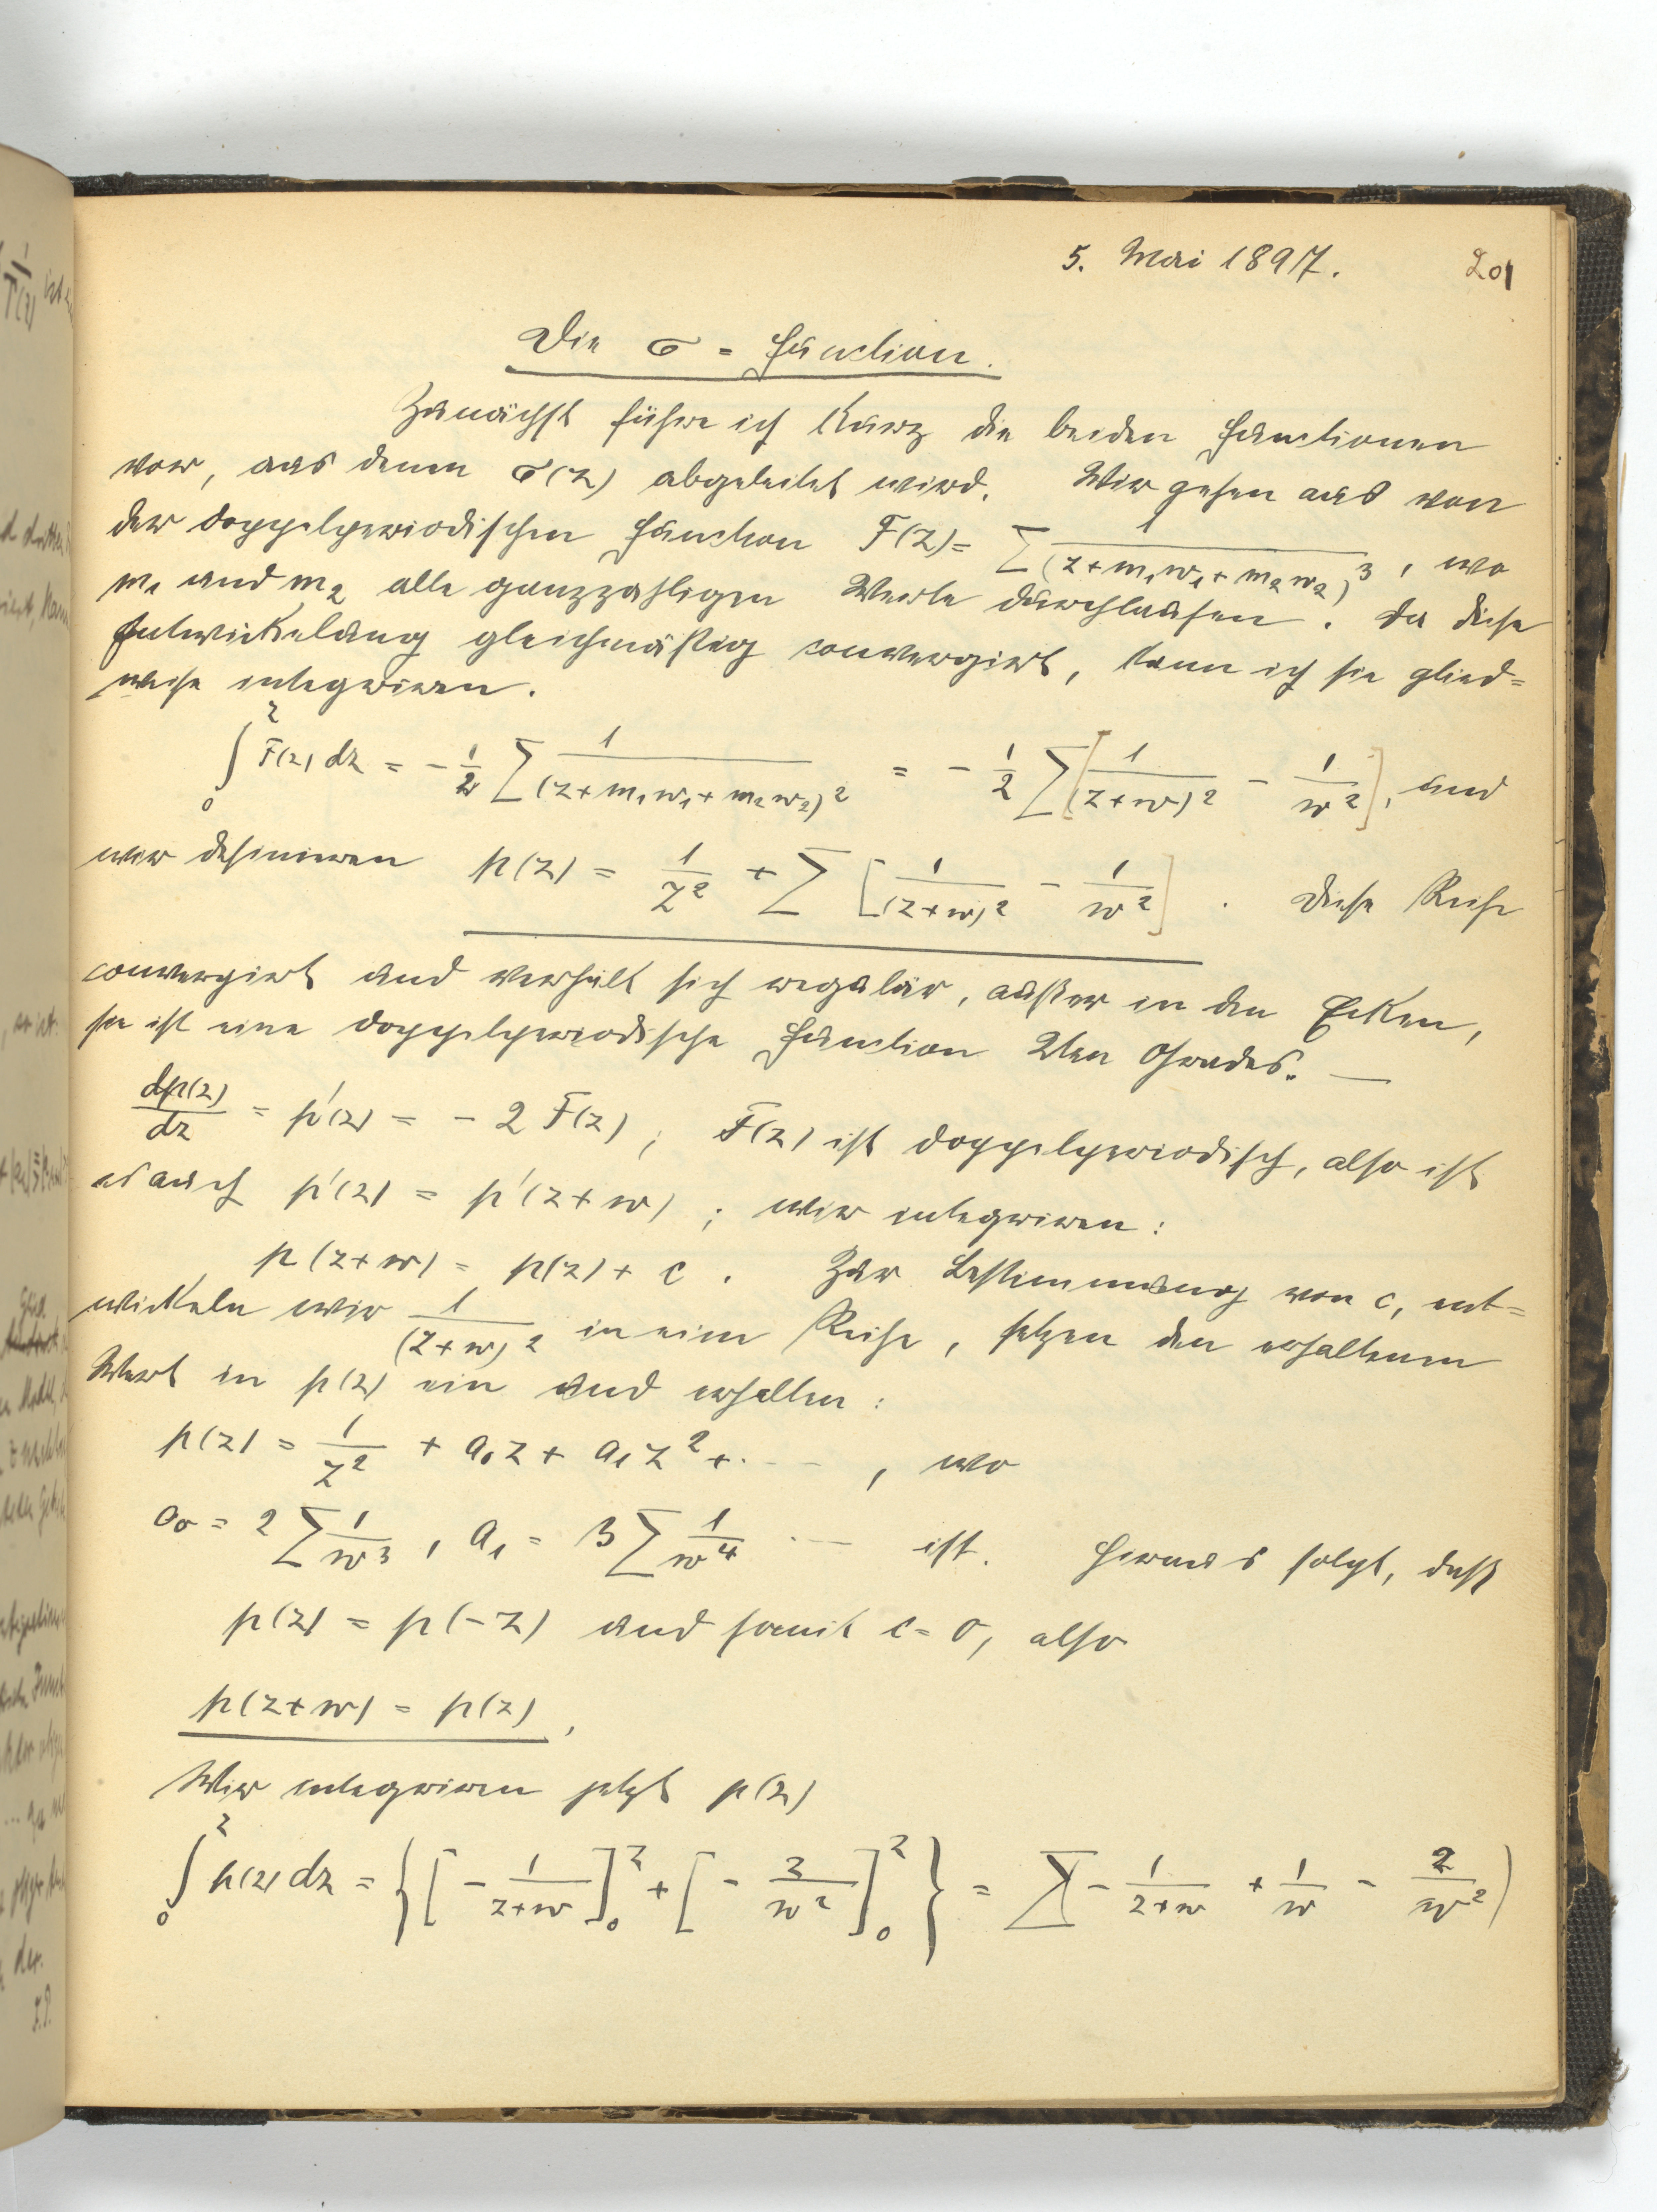 5. Mai 1897.
201
Die σ = Function.
Zunächst führe ich kurz die beiden Functionen
vor, aus denen σ(z) abgeleitet wird. Wir gehen aus von
der doppelperiodischen Function F(z) = ∑ 1/(z+m₁w₁+m₂w₂)³, wo
m₁ und m₂ alle ganzzahligen Werte durchlaufen. Da diese
Entwickelung gleichmäßig convergirt, kann ich sie glied=
weise integriren.
∫₀ᶻ F(z) dz = - 1/2 ∑ 1/(z+m₁w₁+m₂w₂)² = - 1/2 ∑ [1/(z+w)² - 1/w²], und
wir definiren p(z) = 1/z² + ∑ [1/(z+w)² - 1/w²]. Diese Reihe
convergirt und verhält sich regulär, außer in den Ecken,
sie ist eine doppelperiodische Function 2ten Grades. —
dp(z)/dz = p'(z) = - 2 F(z); F(z) ist doppelperiodisch, also ist
es auch p'(z) = p'(z+w); wir integriren:
p(z+w) = p(z) + c. Zur Bestimmung von c, ent=
wickeln wir 1/(z+w)² in eine Reihe, setzen den erhaltenen
Wert in p(z) ein und erhalten:
p(z) = 1/z² + a₀z + a₁z² + · — , wo
a₀ = 2 ∑ 1/w³, a₁ = 3 ∑ 1/w⁴ · — ist. Hieraus folgt, daß
p(z) = p(-z) und somit c = 0, also
p(z+w) = p(z),
Wir integriren jetzt p(z)
∫₀ᶻ p(z) dz = {[- 1/(z+w)]₀ᶻ + [- z/w²]₀ᶻ} = ∑(- 1/(z+w) + 1/w - z/w²)